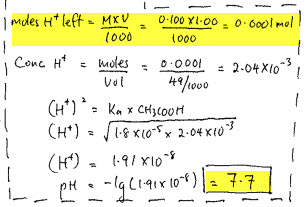 moles H⁺ left = MxV/1000 = 0.100 X 1.00/1000 = 0.0001 mol
Conc H⁺ = moles/vol = 0.0001/49/1000 = 2.04X10⁻³
(H⁺)² = Ka x CH3COOH
(H⁺) = √1.8x10⁻⁵ x 2.04x10⁻³
(H⁺) = 1.91 X10⁻⁸
pH = -lg(1.91x10⁻⁸) = 7.7